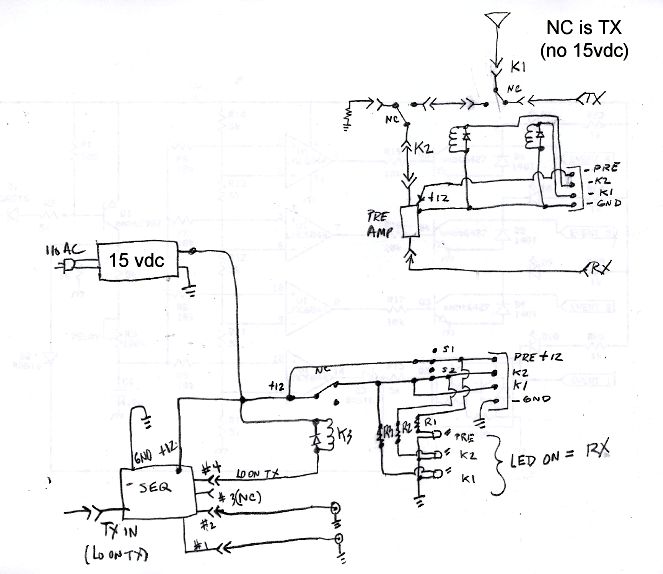 NC is TX
(no 15vdc)
K1
NC
TX
NC
K2
- PRE
- K2
- K1
- GND
+12
PRE
AMP
RX
110 AC
15 vdc
S1
PRE +12
NC
+12
S2
K2
K1
- GND
K3
R3
R2
R1
PRE
K2
K1
LED ON = RX
GND
+12
#4
LO ON TX
- SEQ
#3 (NC)
#2
TX IN
(LO ON TX)
#1